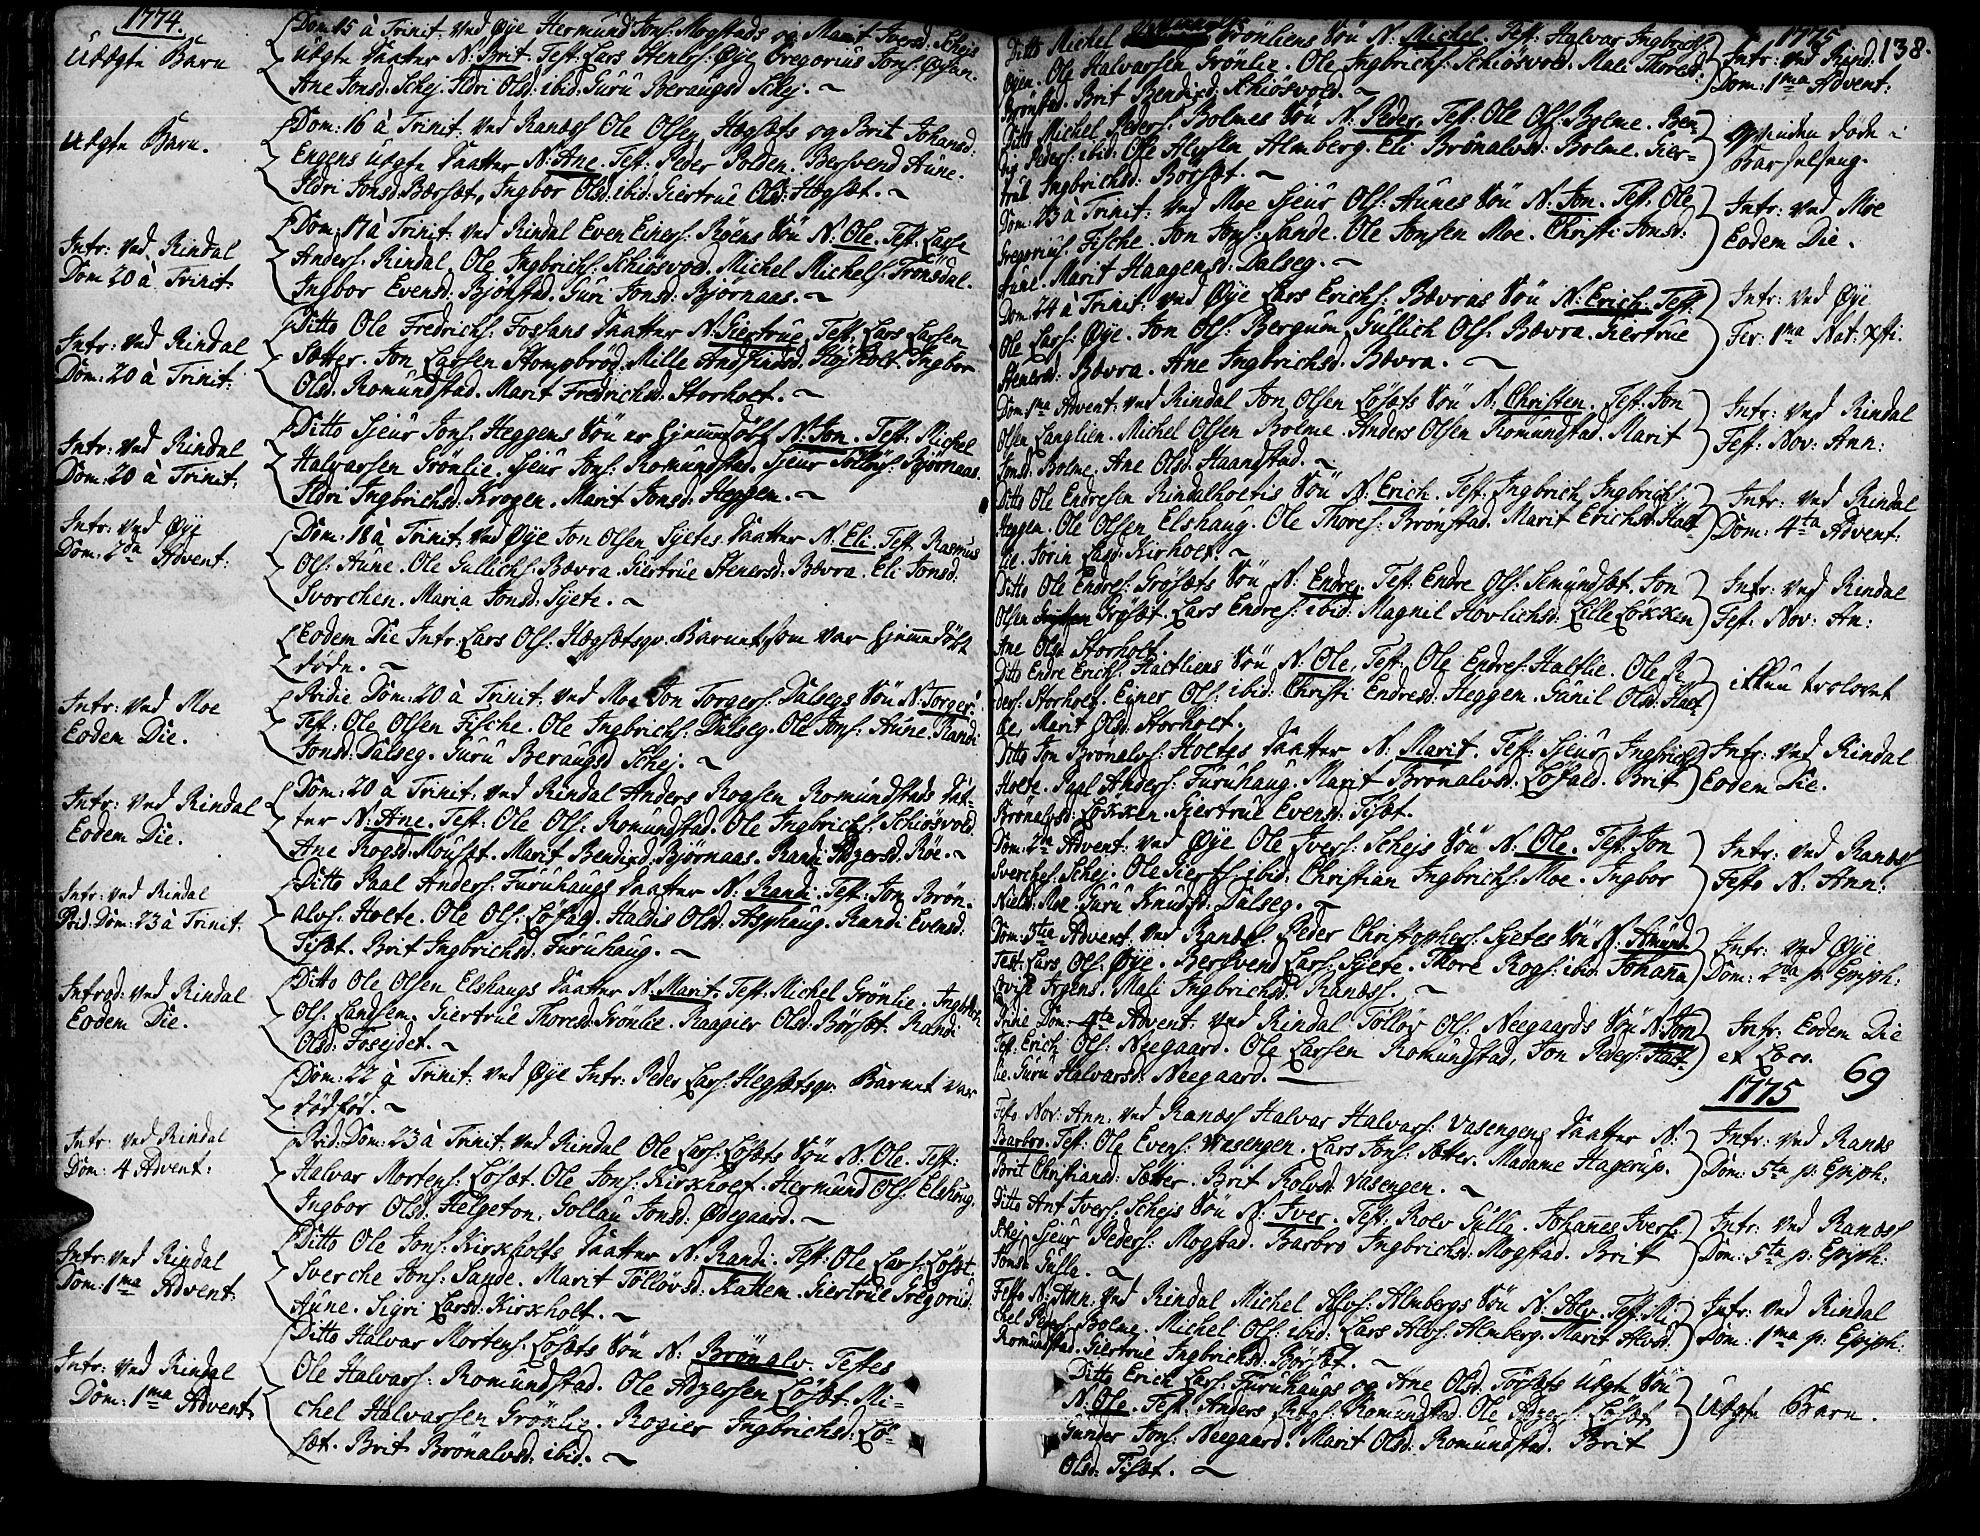 1774.
Uægte Barn
Dom: 15 à Trinit. ved Øye Hermund Jons: Mogstads og Marit Iversd: Schejs
uægte Daatter N: Brit. Test: Lars Steners: Øye Gregorius Jons: Øyan.
Ane Jonsd: Schej. Ildri Olsd: ibid: Guru Beraugsd Schej.
Uægte Barn.
Dom: 16 à Trinit: ved Ranæss Ole Olsen Hægsæts og Brit Johansd:
Engens uægte Daatter N: Ane. Test: Peder Polden. Bersvend Aune.
Ildri Jonsd: Børsæt. Ingbor Olsd: ibid: Giertrue Olsd: Hægsæt.
Intr: ved Rindal
Dom 20 à Trinit:
Dom: 17 à Trinit: ved Rindal Even Einers: Røens Søn N: Ole. Test: Lars
Anders: Rindal. Ole Ingbrichs: Schiøsvold. Michel Michels: Tronsdal.
Ingbor Evensd: Bjønstad. Guri Jonsd: Bjørnaas.
Intr: ved Rindal
Dom: 20 à Trinit:
Ditto Ole Fredrichs: Fossans Daatter N: Giertrue. Test: Lars Larsen
Sætter. Jon Larsen Stomprød. Mille Andfindsd: Høiholt. Ingbor
Olsd: Romundstad. Marit Fredrichsd: Storholt.
Intr: ved Rindal
Dom: 20 à Trinit:
Ditto Sjeur Jons: Heggens Søn er hjemmedøbt N: Jon. Test: Michel
Halvarsen Grönlie. Sjeur Jons: Romundstad. Sjeur Tølløvs: Bjørnaas.
Ildri Ingbrichsd: Krogen. Marit Jonsd: Heggen.
Intr: ved Øye
Dom: 2da Advent:
Dom: 18 à Trinit: ved Øye Jon Olsen Syetes Daatter N: Eli. Test: Rasmus
Ols: Aune. Ole Gullichs: Bævra. Giertrue Stenersd: Bævra. Eli Jonsd:
Svorchen. Maria Jonsd: Syete.
Eodem Die Intr: Lars Ols: Hægsætsqv. Barnet som var hjemmedöbt
döde.
Intr: ved Moe
Eodem Die.
Pridie Dom: 20 à Trinit: ved Moe Jon Torgers: Dalsegs Søn N: Torger.
Test: Ole Olsen Fische. Ole Ingbrichs: Dalseg. Ole Jons: Aune. Randi
Jonsd: Dalseg. Guru Beraugsd Schej.
Intr: ved Rindal
Eodem Die.
Dom: 20 à Trinit: ved Rindal Anders Rogsen Romundstads Dat-
ter N: Ane. Test: Ole Ols: Romundstad. Ole Ingbrichs: Schiøsvold.
Ane Rogsd: Mouset. Marit Bendixd Bjørnaas. Randi Adzersd: Røe.
Intr: ved Rindal
Prid: Dom: 23 à Trinit:
Ditto Paal Anders: Furuhaugs Daatter N: Randi. Test: Jon Brön-
alvs: Holte. Ole Ols: Løfald. Haldis Olsd: Asphaug. Randi Evensd:
Tiset. Brit Ingbrichsd: Furuhaug.
Introd: ved Rindal
Eodem Die.
Ditto Ole Olsen Elshaugs Daatter N: Marit. Test: Michel Grönlie. Ingbrich
Ols: Landsem. Giertrue Thoresd: Grönlie. Raagier Olsd: Börset. Randi
Olsd: Fosejdet.
Dom: 22 à Trinit: ved Øye Intr: Peder Lars: Hegsætsqv. Barnet var
dödfød.
Intr: ved Rindal
Dom: 4 Advent:
Prid: Dom: 23 à Trinit: ved Rindal Ole Lars: Løsæts Søn N: Ole. Test:
Halvar Mortens: Løsæt. Ole Jons: Kirkholt. Hermund Ols: Elshaug.
Ingbor Olsd: Helgeton. Gollau Jonsd: Ødegaard.
Intr: ved Rindal
Dom: 1ma Advent:
Ditto Ole Jons: Kirkholts Daatter N: Randi. Test: Ole Lars: Løsæt.
Sverche Jons: Sande. Marit Tølløvsd: Kattem. Giertrue Gregoriid:
Aune. Sigri Larsd: Kirkholt.
Intr: ved Rindal
Dom: 1ma Advent:
Ditto Halvar Mortens: Løsæts Søn N: Brönalv. Testes
Ole Halvars: Romundstad. Ole Adzersen Løsæt. Mi-
chel Halvarsen Grönlie. Rogier Ingbrichsd: Lö-
sæt. Brit Brönalvsd: ibid:
1775
138.
Ditto Michel Grönliens Søn N: Michel. Test: Halvar Ingbrichs:
Øyen. Ole Halvarsen Grönlie. Ole Ingbrichs: Schiøsvold. Mali Thoresd:
Brönstad. Brit Bendixd: Schiøsvold.
Intr: ved Rind:
Dom: 1ma Advent:
Ditto Michel Peders: Bolmes Søn N: Peder. Test: Ole Ols: Bolme. Ben
dig Peders: ibid: Ole Alvsen Almberg. Eli Brönalvsd: Bolme. Gier-
true Ingbrichsd: Börsæt.
Qvinden døde i
Barselseng.
Dom: 23 à Trinit: ved Moe Sjeur Ols: Aunes Søn N: Jon. Test: Ole
Gregorius: Fische. Jon Jons: Sande. Ole Jonsen Moe. Christi Jonsd:
Aune. Marit Haagensd: Dalseg.
Intr: ved Moe
Eodem Die.
Dom: 24 à Trinit: ved Øye Lars Erichs: Bævras Søn N: Erich. Test:
Ole Lars: Øye. Jon Ols: Bergum. Gullich Ols: Bævra. Giertrue
Stenersd: Bævra. Ane Ingbrichsd: Bævra.
Intr: ved Øye
Fer: 1ma Nat: Xsti.
Dom: 1ma Advent: ved Rindal Jon Olsen Løsæts Søn N: Christen. Test: Jon
Olsen Langlien. Michel Olsen Bolme. Anders Olsen Romundstad. Marit
Jonsd: Bolme. Ane Olsd: Haandstad.
Intr: ved Rindal
Fest: Nov: Ann:
Ditto Ole Endresen Rindalholtis Søn N: Erich. Test: Ingbrich Ingbrichs:
Heggen. Ole Olsen Elshaug. Ole Thores: Brønstad. Marit Erichsd: Halt
lie. Jorin Larsd: Kirholt.
Intr: ved Rindal
Dom: 4ta Advent:
Ditto Ole Endres: Grösæts Søn N: Endre. Test: Endre Ols: Semundsæt. Jon
Olsen Grøset. Lars Endres: ibid: Magnil Hovlichsd: Lille Løkken
Ane Olsd Storholt.
Intr: ved Rindal
Fest: Nov: An:
Ditto Endre Erichs: Haltliens Søn N: Ole. Test: Ole Endres: Haltlie. Ole Pe
ders: Storholt. Ejner Ols: ibid: Christi Endresd: Heggen. Gunil Olsd: Halt
lie. Marit Olsd Storholt.
ikke troloved
Ditto Jon Brönalvs: Holtes Daatter N: Marit. Test: Sjeur Ingbrichs:
Holte. Paal Anders: Furuhaug. Marit Brönalvsd: Løfald. Brit
Brönalvsd: Løkken. Giertrue Evensd: Tiset.
Intr: ved Rindal
Eodem Die.
Dom: 2da Advent: ved Øye Ole Ivers: Schejs Søn N: Ole. Test: Jon
Sverches: Schej. Ole Sierts: ibid: Christian Ingbrichs: Moe. Ingbor
Nielsd: Moe. Guru Knudsd: Dalseg.
Intr: ved Ranæss
Festo N: Ann:
Dom: 3tia Advent: ved Ranæss Peder Christophers: Syetes Søn N: Amund.
Test: Lars Ols: Øye. Bersvend Lars: Syete. Thore Rogs: ibid: Johanna
Lovise Irgens. Mali Ingbrichsd: Ranæss.
Intr: ved Øye
Dom: 2da p. Epiph:
Pridie Dom: 4ta Advent: ved Rindal Tølløv Ols: Neegaards Søn N: Jon
Test: Erich Ols: Neegaard. Ole Larsen Romundstad. Jon Peders: Halt-
lie. Guru Halvarsd: Neegaard.
Intr: Eodem Die
et Loco.
1775
69
Festo Nov: Ann: ved Ranæss Halvar Halvars: Vasengens Daatter N:
Barbro. Test: Ole Evens: Wasengen. Lars Jons: Sætter. Madame Hagerup.
Brit Christiansd: Sætter. Brit Rolvsd: Vasengen.
Intr: ved Ranæs
Dom: 5ta p: Epiph:
Ditto Ant Ivers: Schejs Søn N: Iver. Test: Rolv Gulla. Johannes Ivers:
Schej. Sjeur Peders: Mogstad. Barbro Ingbrichsd: Mogstad. Brit
Jonsd: Gulla.
Intr: ved Ranæss
Dom: 5ta p: Epiph:
Festo N: Ann. ved Rindal Michel Alvs: Almbergs Søn N: Alv. Test: Mi-
chel Peders: Bolme. Michel Ols: ibid: Lars Alvs: Almberg. Marit Alvsd:
Romundstad. Giertrue Ingbrichsd: Börsæt.
Intr: ved Rindal
Dom: 1ma p: Epiph:
Ditto Erich Lars: Furuhaugs og Ane Olsd: Torsæts uægte Søn
N: Ole. Test: Anders Rogs: Romundstad. Ole Adzers: Løsæt
Gunder Jons: Neegaard. Marit Olsd: Romundstad. Brit
Olsd: Tiset.
Uægte Barn.